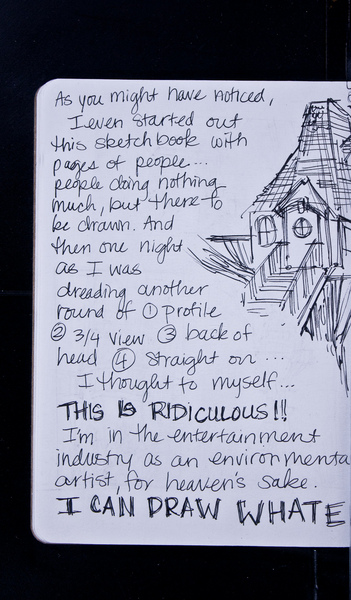 As you might have noticed,
I even started out
this sketchbook with
pages of people...
people doing nothing
much, but there to
be drawn. And
then one night
as I was
dreading another
round of ① profile
② 3/4 view ③ back of
head ④ straight on...
I thought to myself...
THIS IS RIDICULOUS!!
I'm in the entertainment
industry as an environmenta
artist, for heaven's sake.
I CAN DRAW WHATE